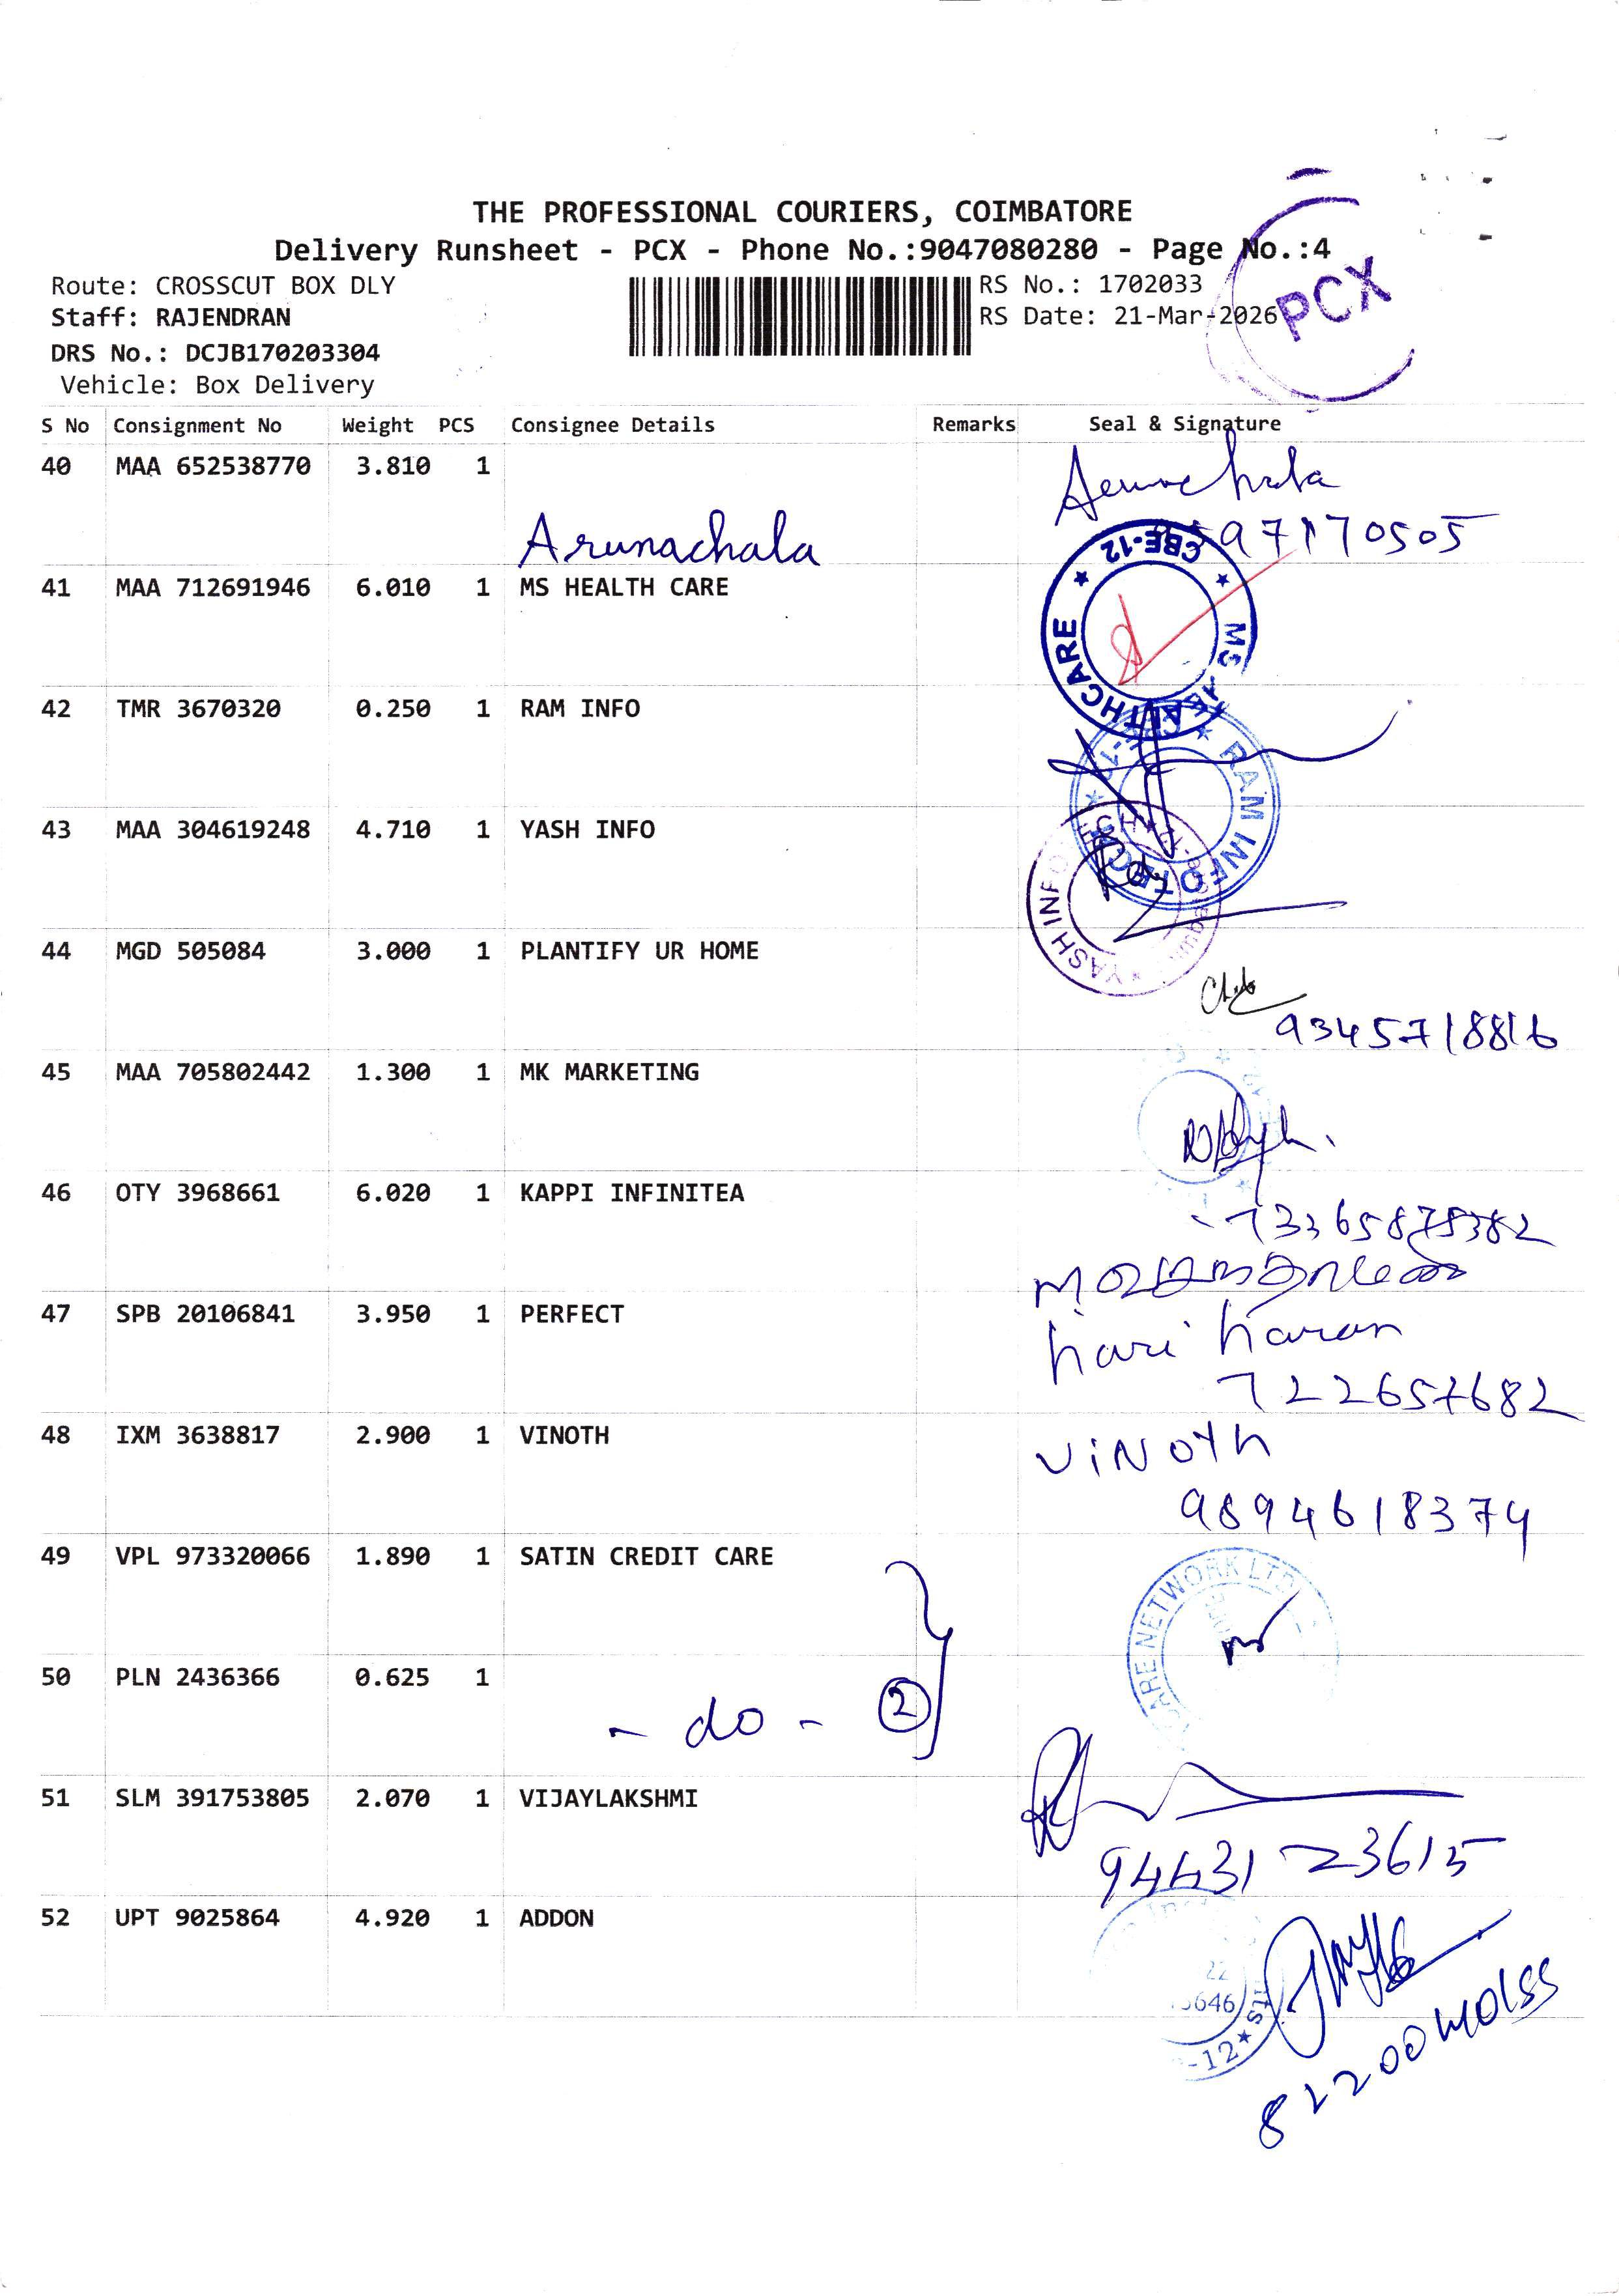 THE PROFESSIONAL COURIERS, COIMBATORE
Delivery Runsheet - PCX - Phone No.:9047080280 - Page No.:4
Route: CROSSCUT BOX DLY
RS No.: 1702033
Staff: RAJENDRAN
RS Date: 21-Mar-2026
PCX
DRS No.: DCJB170203304
Vehicle: Box Delivery
S No Consignment No Weight PCS Consignee Details Remarks Seal & Signature
40 MAA 652538770 3.810 1
Arunachala
97170505
41 MAA 712691946 6.010 1 MS HEALTH CARE
CBE-12 ★ MS HEALTHCARE ★
42 TMR 3670320 0.250 1 RAM INFO
★ RAM INFOTECH ★
43 MAA 304619248 4.710 1 YASH INFO
YASH INFO
44 MGD 505084 3.000 1 PLANTIFY UR HOME
9345718816
45 MAA 705802442 1.300 1 MK MARKETING
46 OTY 3968661 6.020 1 KAPPI INFINITEA
47 SPB 20106841 3.950 1 PERFECT
hari haran
722657682
48 IXM 3638817 2.900 1 VINOTH
ViNoth
9894618374
49 VPL 973320066 1.890 1 SATIN CREDIT CARE
CARE NETWORK LTD
50 PLN 2436366 0.625 1
- do - 2
51 SLM 391753805 2.070 1 VIJAYLAKSHMI
94431 23615
52 UPT 9025864 4.920 1 ADDON
22
646
-12★